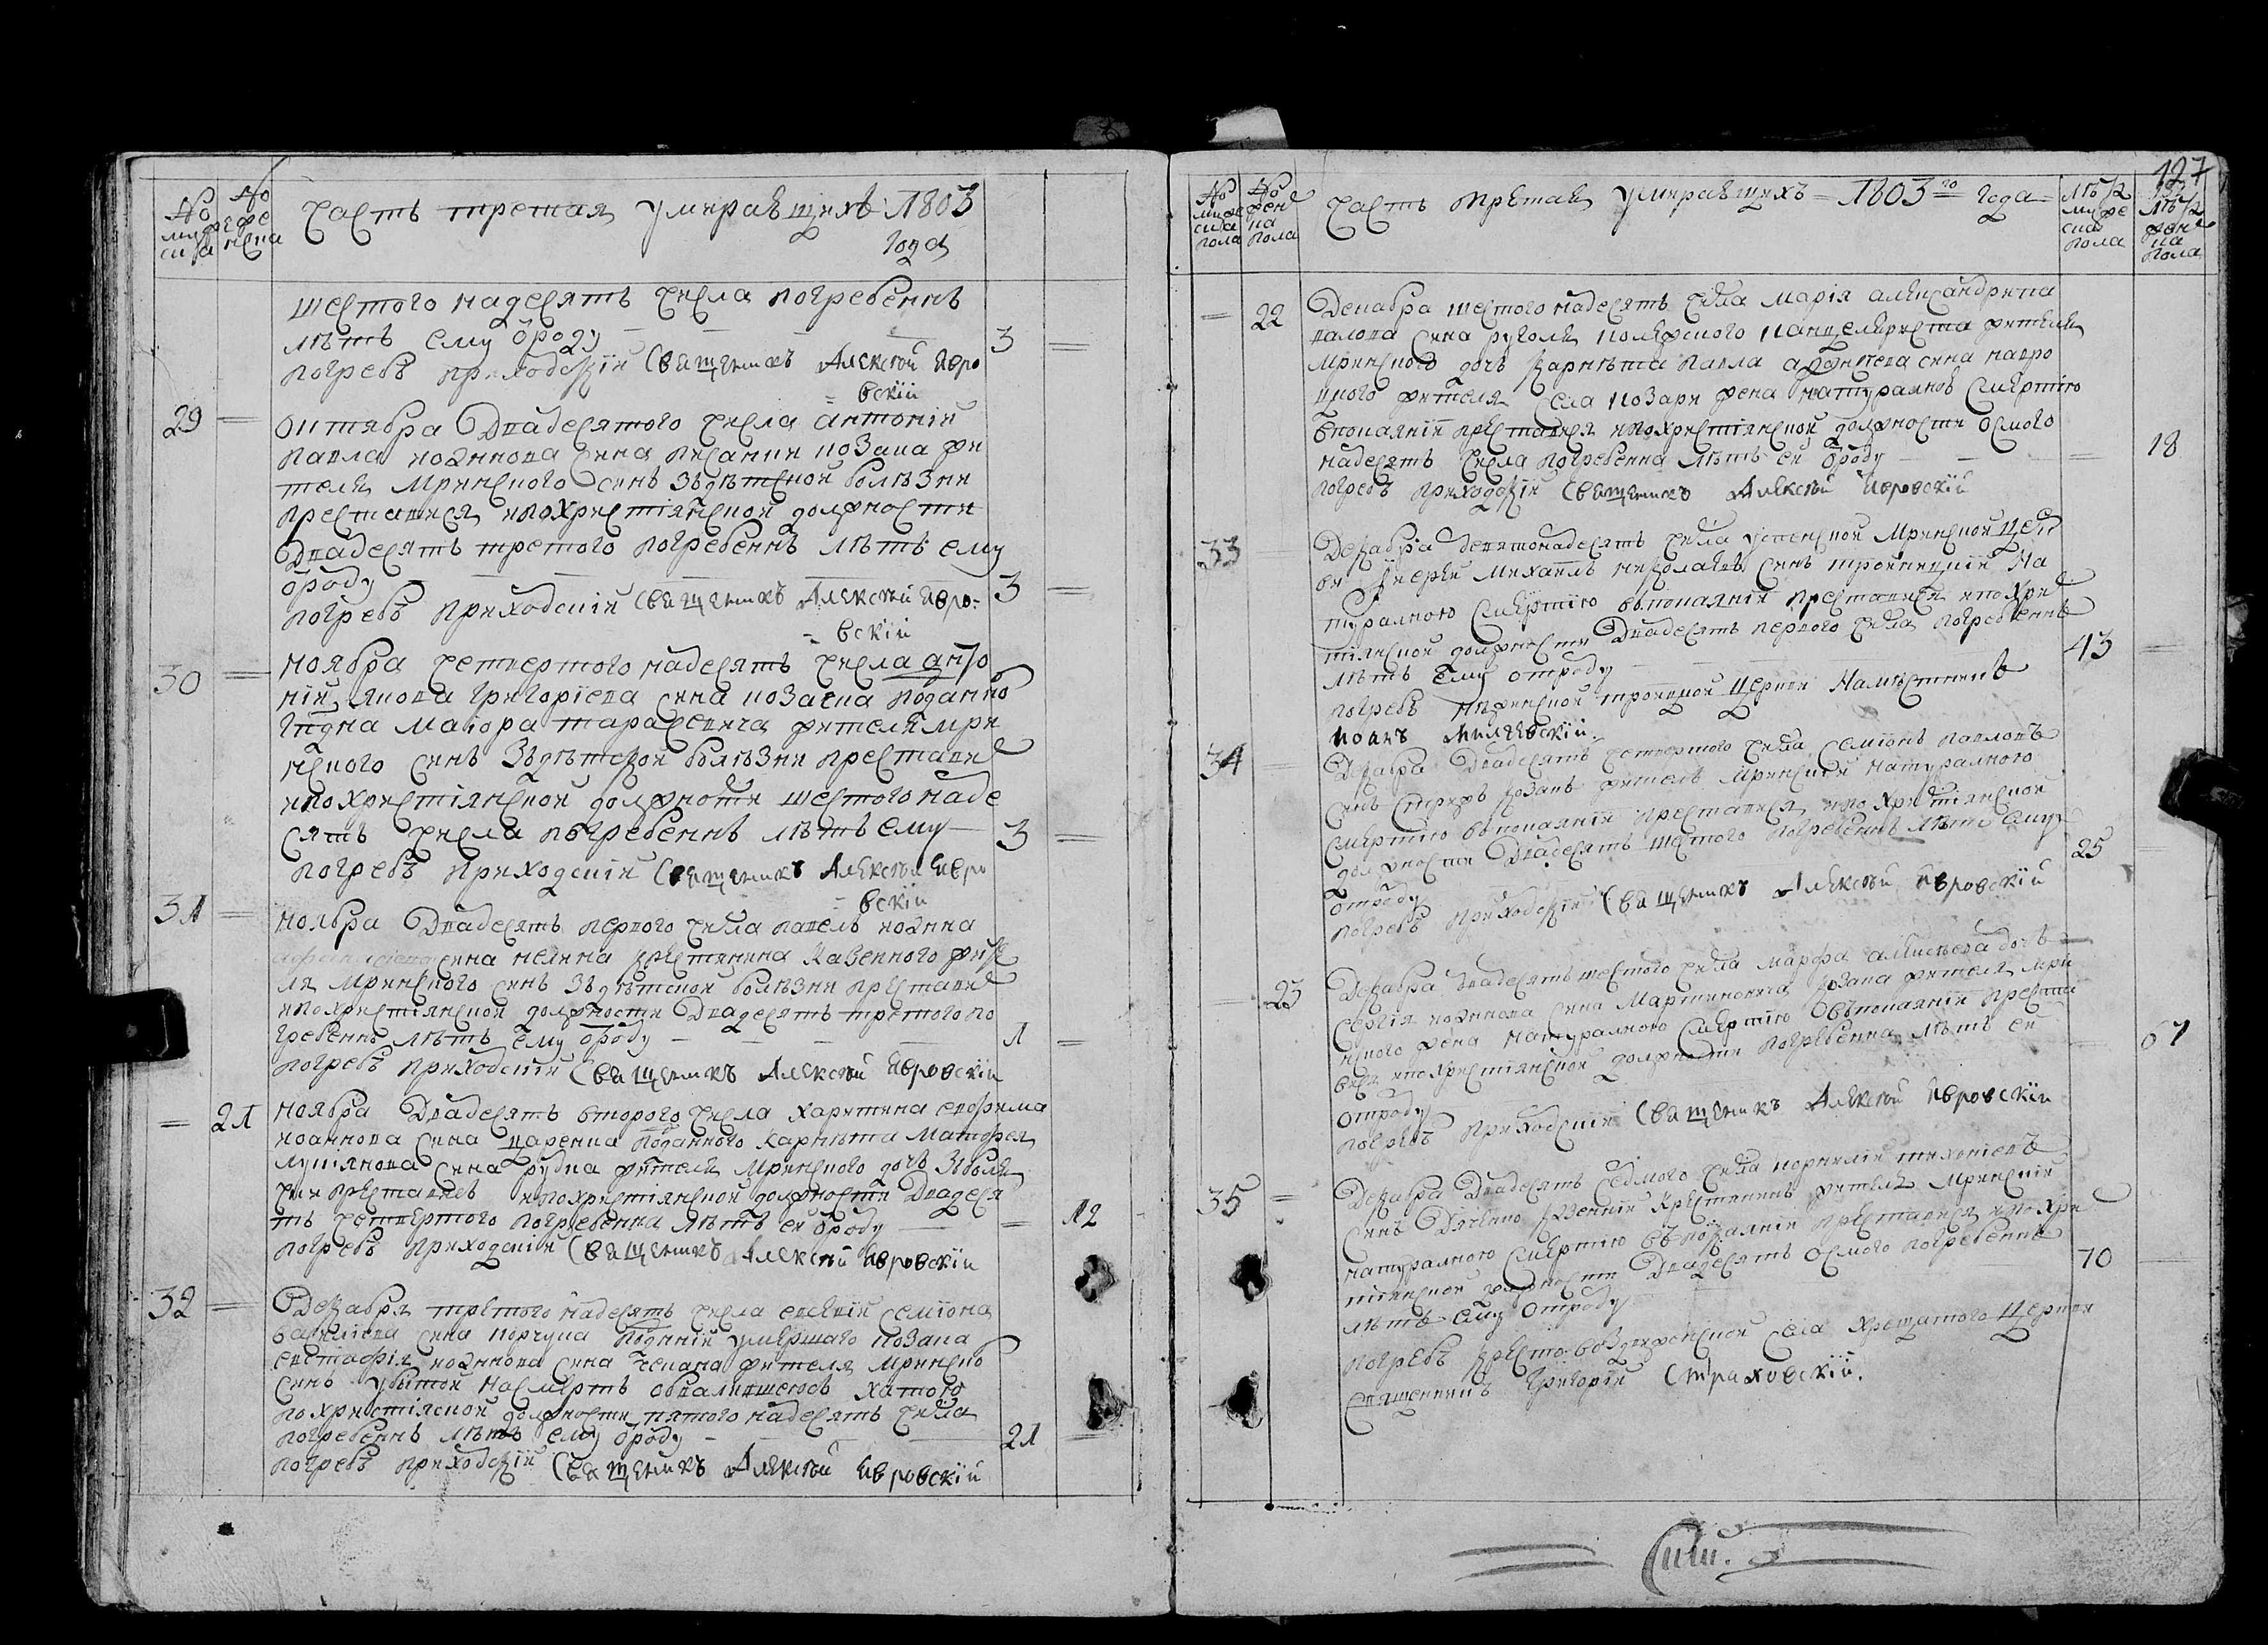 № мужеска
№ жена
Часть третая умиравшихъ 1803
года
шестого надесять числа погребеннъ
лѣтъ ему ѿроду 3
погребъ приходскїй Священикъ Алексѣй Явро
вскїй
29
октября двадесятого числа антонїй
павла иоаннова сина писанки козака жи
теля Мринского синъ Зъдѣтской болѣзни
преставися ипохристїянской должности
двадесять третого погребеннъ лѣтъ ему
ѿроду 3
погребъ приходскїй Священикъ Алексѣй Явро-
вскїй
30
ноября четвертого надесять числа анто
нїй якова григорїева сина козака поданно
гпдна маіора тарасевича жителя мри
нского синъ Зъдѣтской болѣзни преставис
ипохристїянской должноти шестого наде
сять числа погребеннъ лѣтъ ему 3
погребъ приходскїй Священикъ Алексѣй Явро
вскїй
31
ноября двадесять первого числа павелъ иоанна
сина крестянина Казенного жите
ля Мринского синъ Зъдѣтской болѣзни преставис
ипохристїянской должности двадесять третого по
гребеннъ лѣтъ ему ѿроду 1
погребъ приходскїй Священикъ Алексѣй Явровскїй
21
ноября двадесять второго числа харитина евфима
иоаннова сина царенка поданного карнѣта Матфея
лукїянова сина рубца жителя Мринского дочь Зъболѣ
зни преставис ипохристїянской должности двадеся
ть четвертого погребенна лѣтъ ей ѿроду 12
погребъ приходскїй Священикъ Алексѣй Явровскїй
32
Декабря третого надесять числа евсевїй семїона
василїева сина поданїй умершаго козака
евстафїя иоаннова сина чепака жителя Мринско
синъ убитой насмерть обвалившеюсь хатою
похристїяской должности пятого надесять числа
погребеннъ лѣтъ ему ѿроду 21
погребъ приходскїй Священикъ Алексѣй Явровскїй
127
№ мужеска пола
№ женска пола
Часть третая умиравшихъ 1803го года
лѣта мужеска пола
лѣта женска пола
22
Декабра шестого надесять числа марїя александрина
павлова сина канцеляриста жителя
Мринского дочь карнѣта павла сина
жителя села козари жена натуралноѣ смертїю
впокаянїи преставися ипохристїянской должности осмого
надесять числа погребенна лѣтъ ей ѿроду 18
погребъ приходскїй Священикъ Алексѣй Явровскїй
33
Декабра девятонадесять числа успенской Мринской церк
ви їиерей Михаилъ николаевъ синъ тройницкїй на
туралною смертїю впокаянїи преставися ипохри
тїянской должности двадесять первого числа погребеннъ
лѣтъ ему отроду 43
погребъ нѣжинской троицкой церкви Намѣстникъ
иоанъ
34
Декабра двадесять четвертого числа семїонъ павловъ
синъ козакъ житель Мринскїй натуралною
смертїю впокаянїи преставися ипохристїянской
должности двадесять шестого погребеннъ лѣтъ ему
отроду 25
погребъ приходскїй Священикъ Алексѣй Явровскїй
23
Декабра двадесять шестого числа марфа алексѣева дочь
сергїя иоаннова сина Мартиновича козака жителя мри
нского жена натуралною смертїю въпокаянїи преста
вися ипохристїянской должности погребенна лѣтъ ей
отроду 67
погребъ приходскїй Священикъ Алексѣй Явровскїй
35
Декабра двадесять седмого числа корнилїй тихонїевъ
синъ дяченко казеннїй крестянинъ житель Мринскїй
натуралною смертїю въпокаянїи преставися ипохри
тїянской должности двадесять осмого погребеннъ
лѣтъ ему отроду 70
погребъ кресто-воздвиженской села хрещатого церкви
священникъ григорїй Страховскїй.